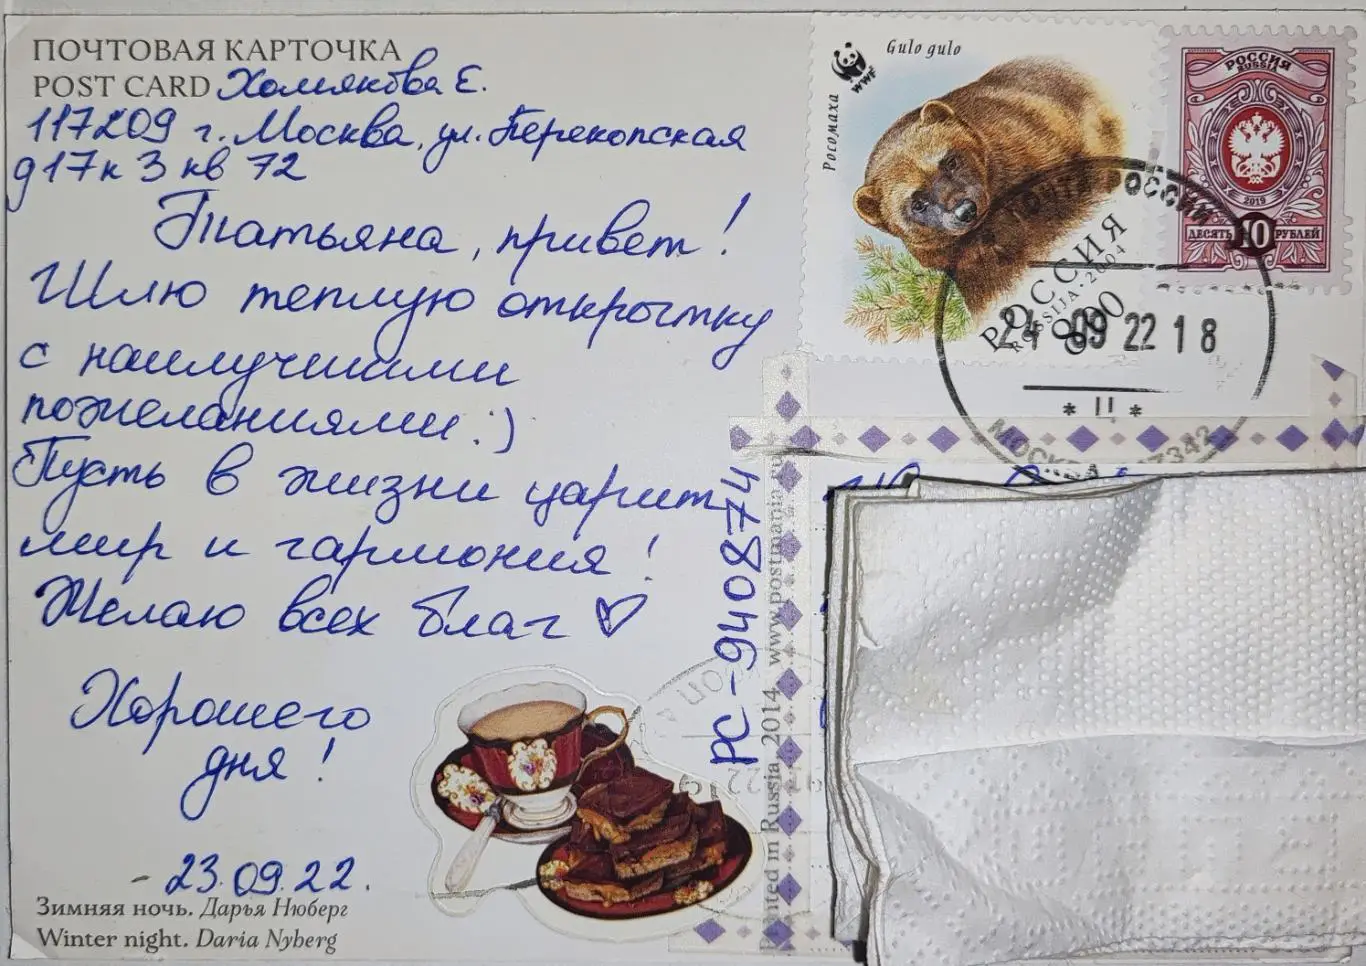 ПОЧТОВАЯ КАРТОЧКА
POST CARD Хомякова Е.
117209 г. Москва, ул. Перекопская
д 17 к 3 кв 72
Татьяна, привет!
Шлю теплую открытку
с наилучшими
пожеланиями :)
Пусть в жизни царит
мир и гармония!
Желаю всех благ ♡
Хорошего
дня!
- 23.09.22.
Зимняя ночь. Дарья Нюберг
Winter night. Daria Nyberg
WWF
Gulo gulo
Росомаха
РОССИЯ
ROSSIJA · 2004
8.00
РОССИЯ
RUSSIA
2019
ДЕСЯТЬ 10 РУБЛЕЙ
ПОЧТА РОССИИ
24 09 22 18
* Ц *
МОСКВА 117342
PC - 9408774
Printed in Russia 2014 www.postmania